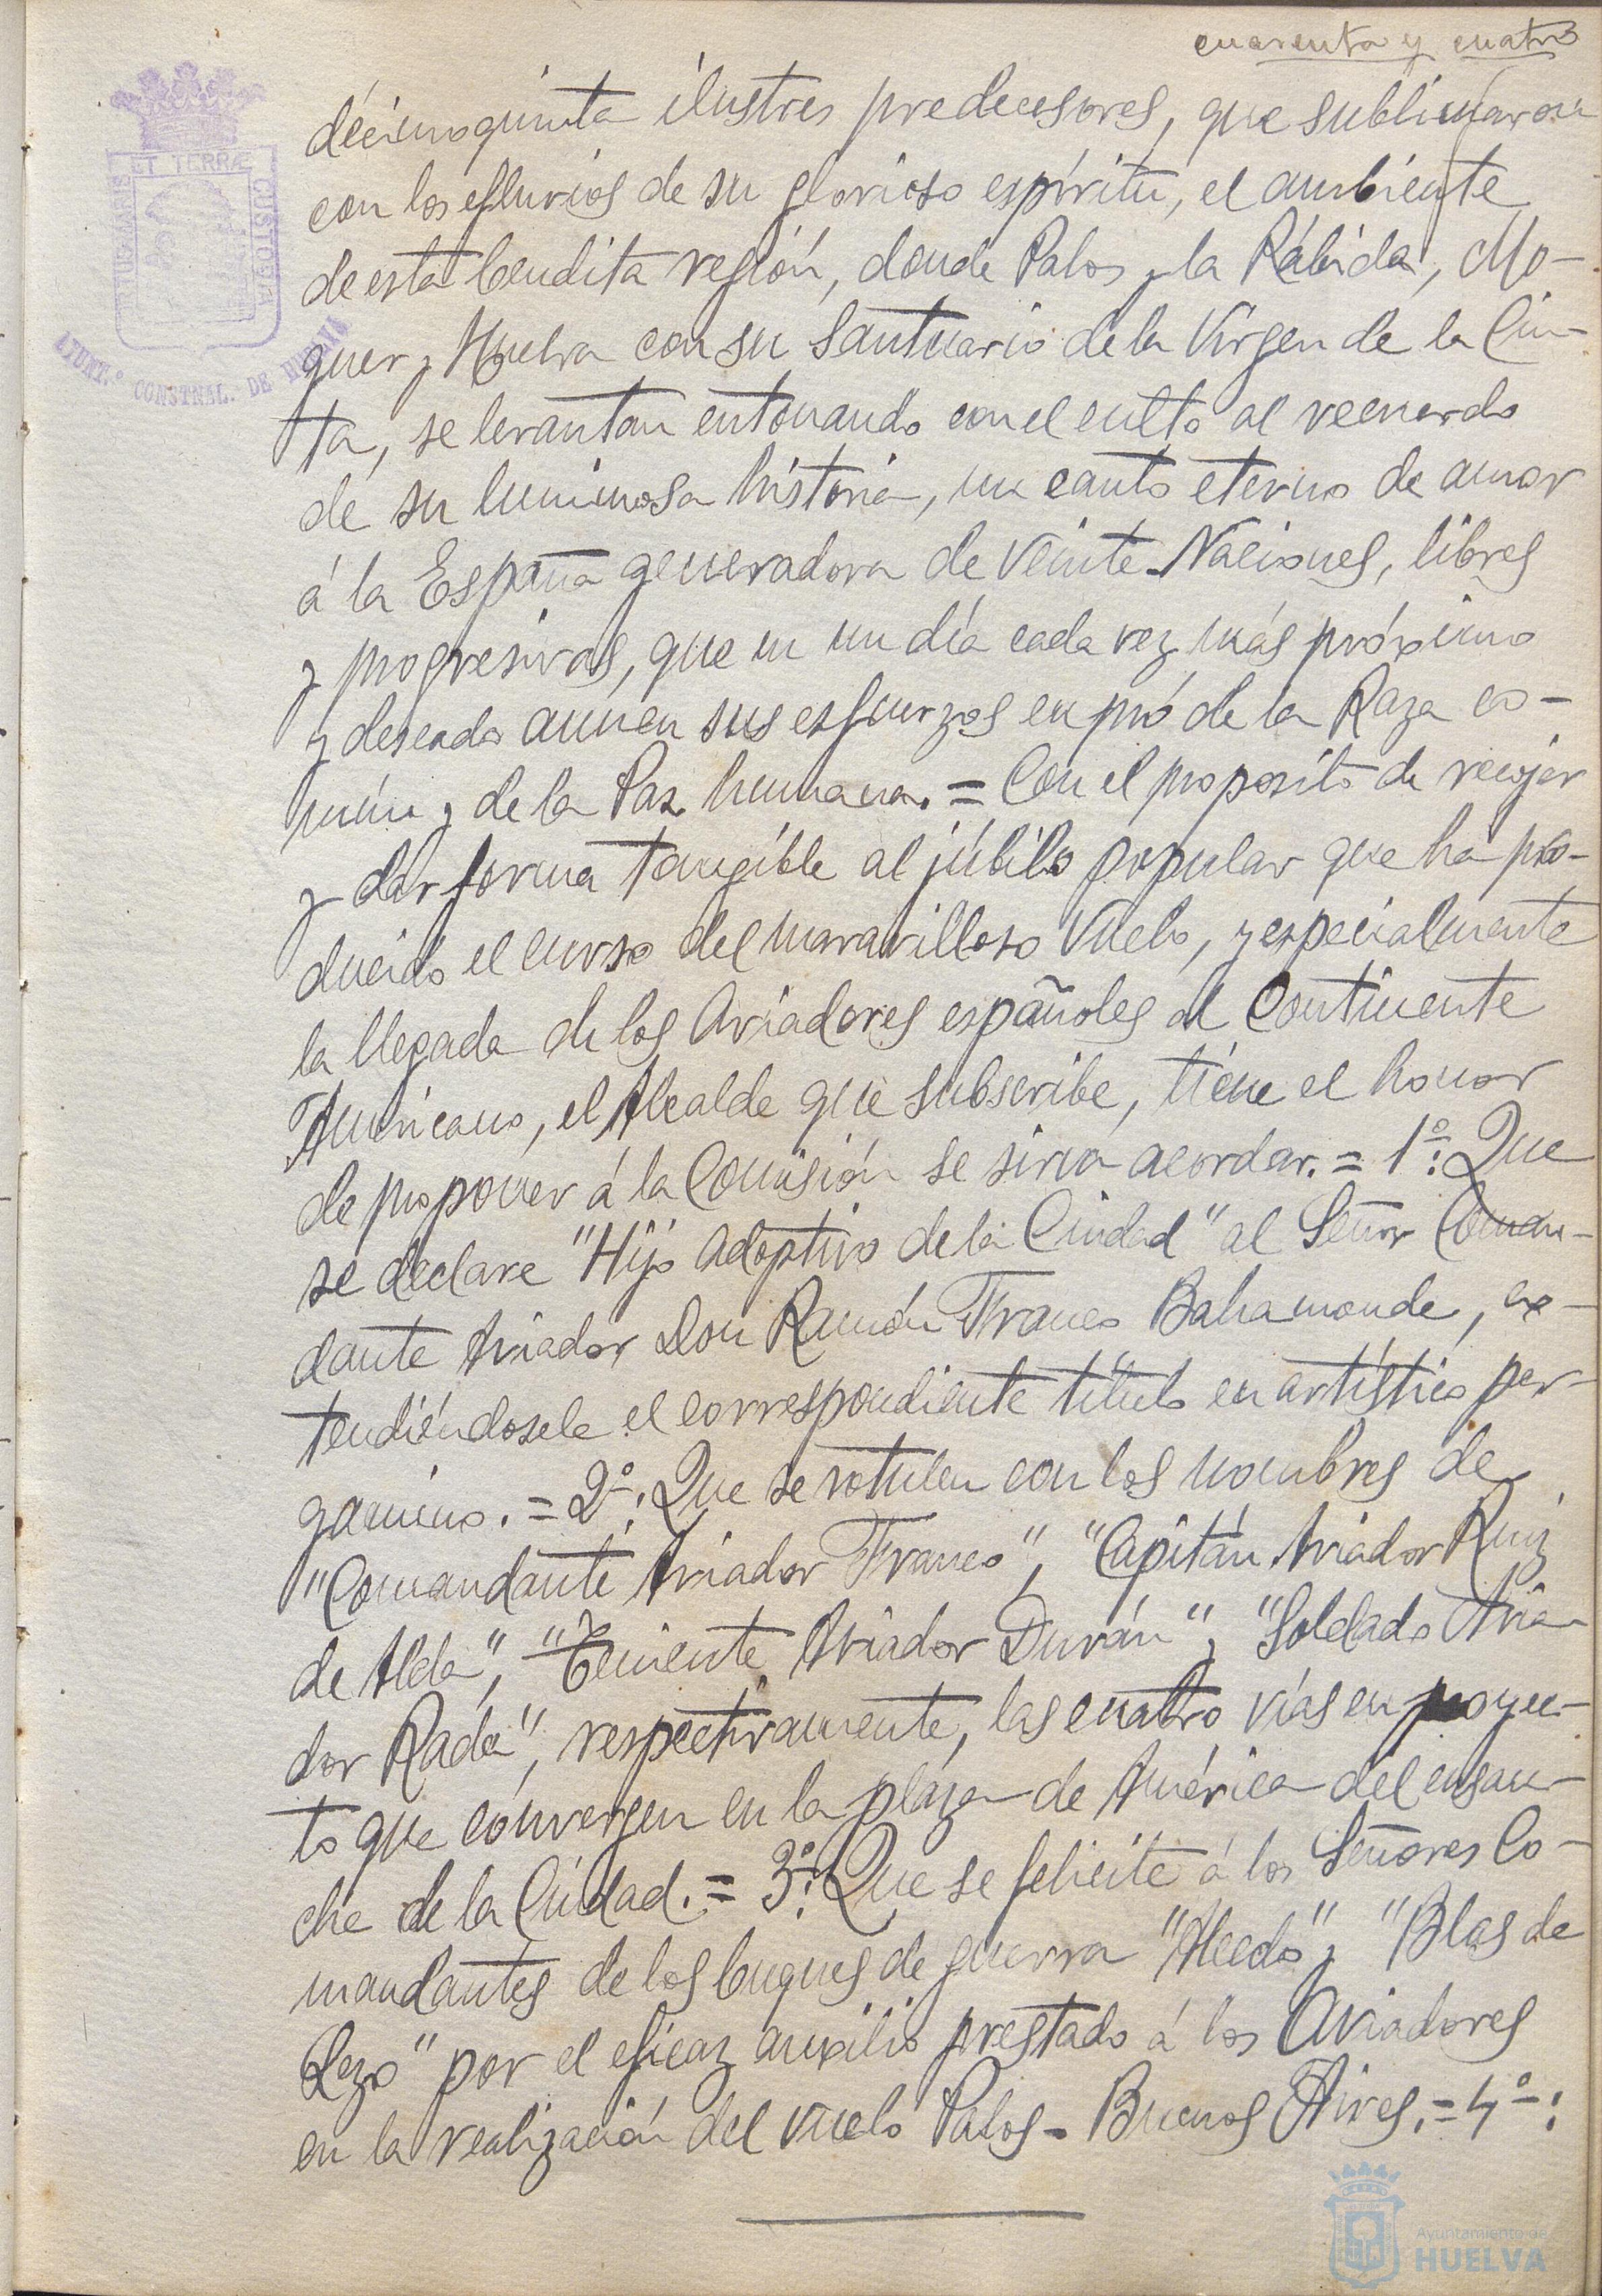 cuarenta y cuatro
PORTUS MARIS ET TERRÆ CUSTODIA
AYUNT.º CONSTNAL. DE HUELVA
décimoquinta ilustres predecesores, que sublimaron
con los efluvios de su glorioso espíritu, el ambiente
de esta bendita región, donde Palos y la Rábida, Mo-
guer y Huelva con su Santuario de la Virgen de la Cin-
ta, se levantan entonando con el culto al recuerdo
de su luminosa historia, un canto eterno de amor
á la España generadora de Veinte Naciones, libres
y progresivas, que en un día cada vez más próximo
y deseado aunen sus esfuerzos en pró de la Raza co-
mún y de la Paz humana. = Con el proposito de recojer
y dar forma tangible al júbilo popular que ha pro-
ducido el curso del maravilloso Vuelo, y especialmente
la llegada de los Aviadores españoles al Continente
Americano, el Alcalde que subscribe, tiene el honor
de proponer á la Comisión se sirva acordar. = 1º: Que
se declare "Hijo Adoptivo de la Ciudad" al Señor Coman-
dante Aviador Don Ramón Franco Bahamonde, ex-
tendiéndosele el correspondiente título en artístico per-
gamino. = 2º: Que se rotulen con los nombres de
"Comandante Aviador Franco", "Capitán Aviador Ruiz
de Alda", "Teniente Aviador Durán" y "Soldado Avia-
dor Rada", respectivamente, las cuatro vías en proyec-
to que convergen en la plaza de América del ensan-
che de la Ciudad. = 3º: Que se felicite á los Señores Co-
mandantes de los buques de guerra "Alcedo" y "Blas de
Lezo" por el eficaz auxilio prestado á los Aviadores
en la realización del vuelo Palos - Buenos Aires. = 4º:
Ayuntamiento de
HUELVA